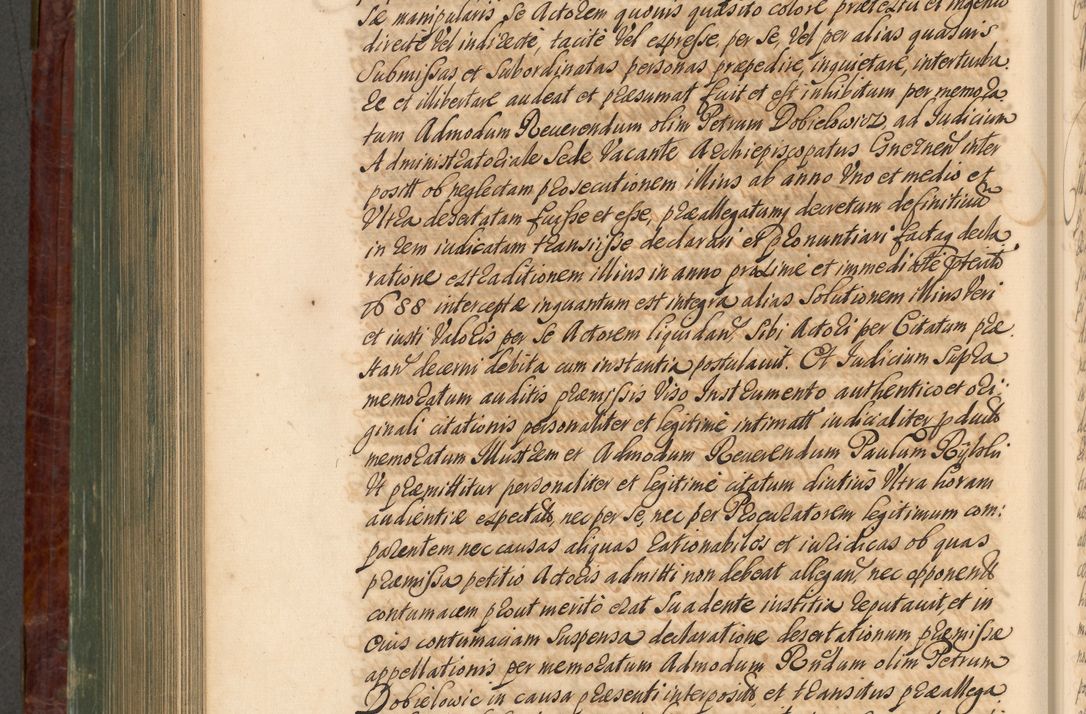 sæ manipularis se Actorem quouis quæsito colore prætextu et ingenio
directè vel indirectè, tacitè vel expresse, per se, vel per alias quasuis
submissas et subordinatas personas præpedire, inquietare, interturba
re et illibertare audeat et præsumat fuit et est inhibitum per memora
tum Admodum Reuerendum olim Petrum Dobielowicz ad Iudicium
Administratoriale Sede Vacante Archiepiscopatus Gneznen inter
positt ob neglectam prosecutionem illius ab anno vno et medio et
vltra desertatam fuisse et esse, præallegatumq decretum definitiuū
in rem iudicatam transiisse declarari et pronuntiari factaq decla
ratione extraditionem illius in anno proximè et immediatè præterito
1688 interceptæ inquantum est integra alias solutionem illius veri
et iusti valoris per se Actorem liquidan sibi Actori per Citatum præ
stan decerni debita cum instantia postulauit. Et Iudicium supra
memoratum auditis præmissis viso Instrumento authentico et ori
ginali citationis personaliter et legitimè intimatt iudicialiter pducto
memoratum Illustrem et Admodum Reuerendum Paulum Rylski
vt præmittitur personaliter et legitimè citatum diutius vltra horam
audientiæ expectatt, nec per se, nec per Procuratorem legitimum com:
parentem nec causas aliquas rationabiles et iuridicas ob quas
præmissa petitio Actoris admitti non debeat allegan nec opponentt
contumacem prout meritò erat suadente iustitia reputauit, et in
eius contumaciam suspensa declaratione desertationum præmissæ
appellationis per memoratum Admodum Rndum olim Petrum
Dobielowic in causa præsenti interpositt et transitus præallega